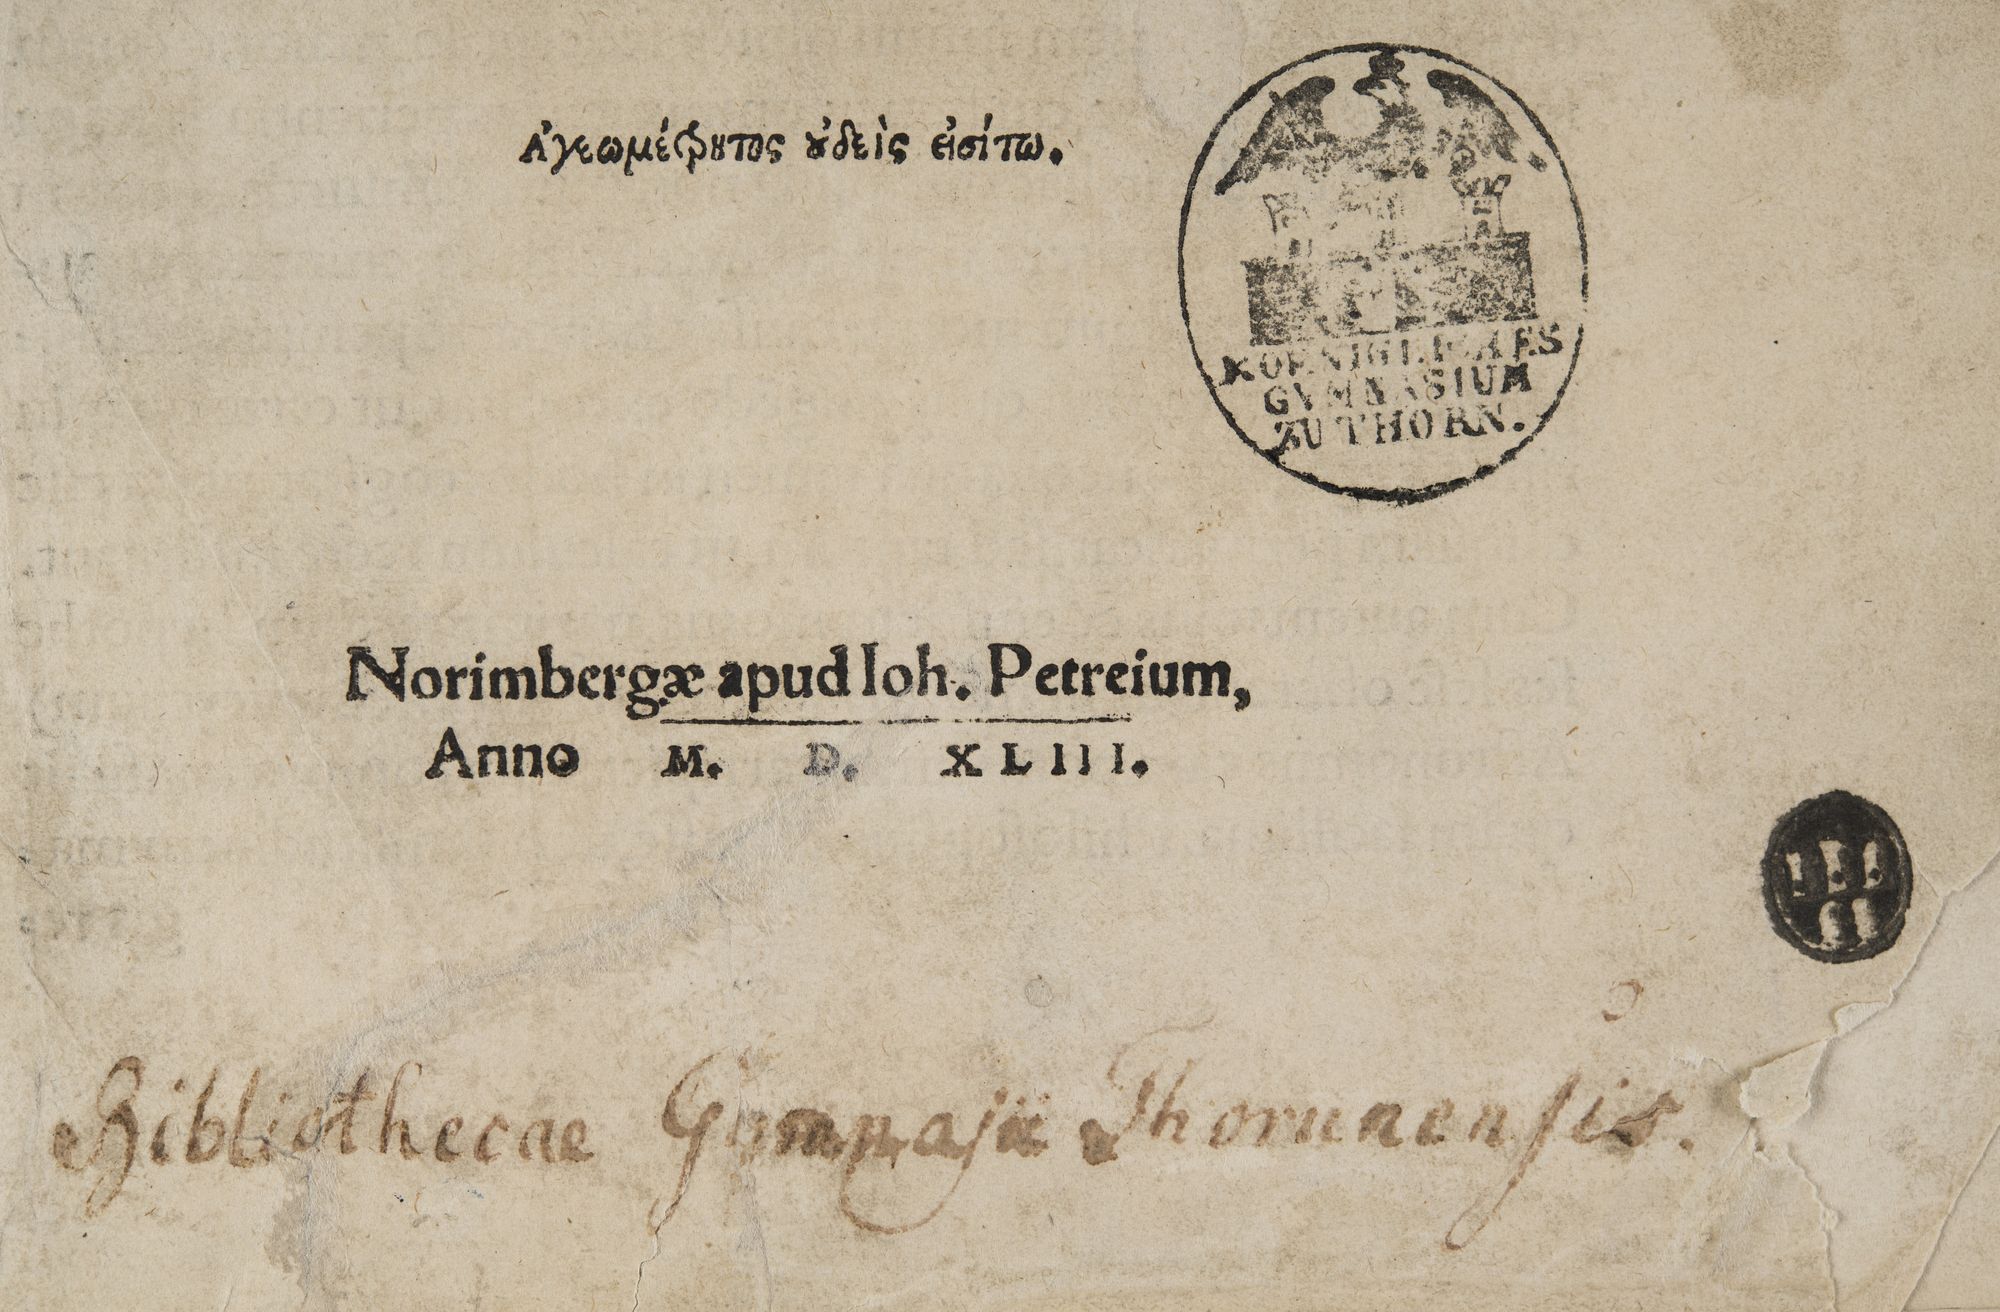 Ἀγεωμέτρητος οὐδεὶς εἰσίτω.
KOENIGLICHES
GYMNASIUM
ZU THORN.
Norimbergæ apud Ioh. Petreium,
Anno M. D. XLIII.
Bibliothecae Gymnasii Thorunensis.